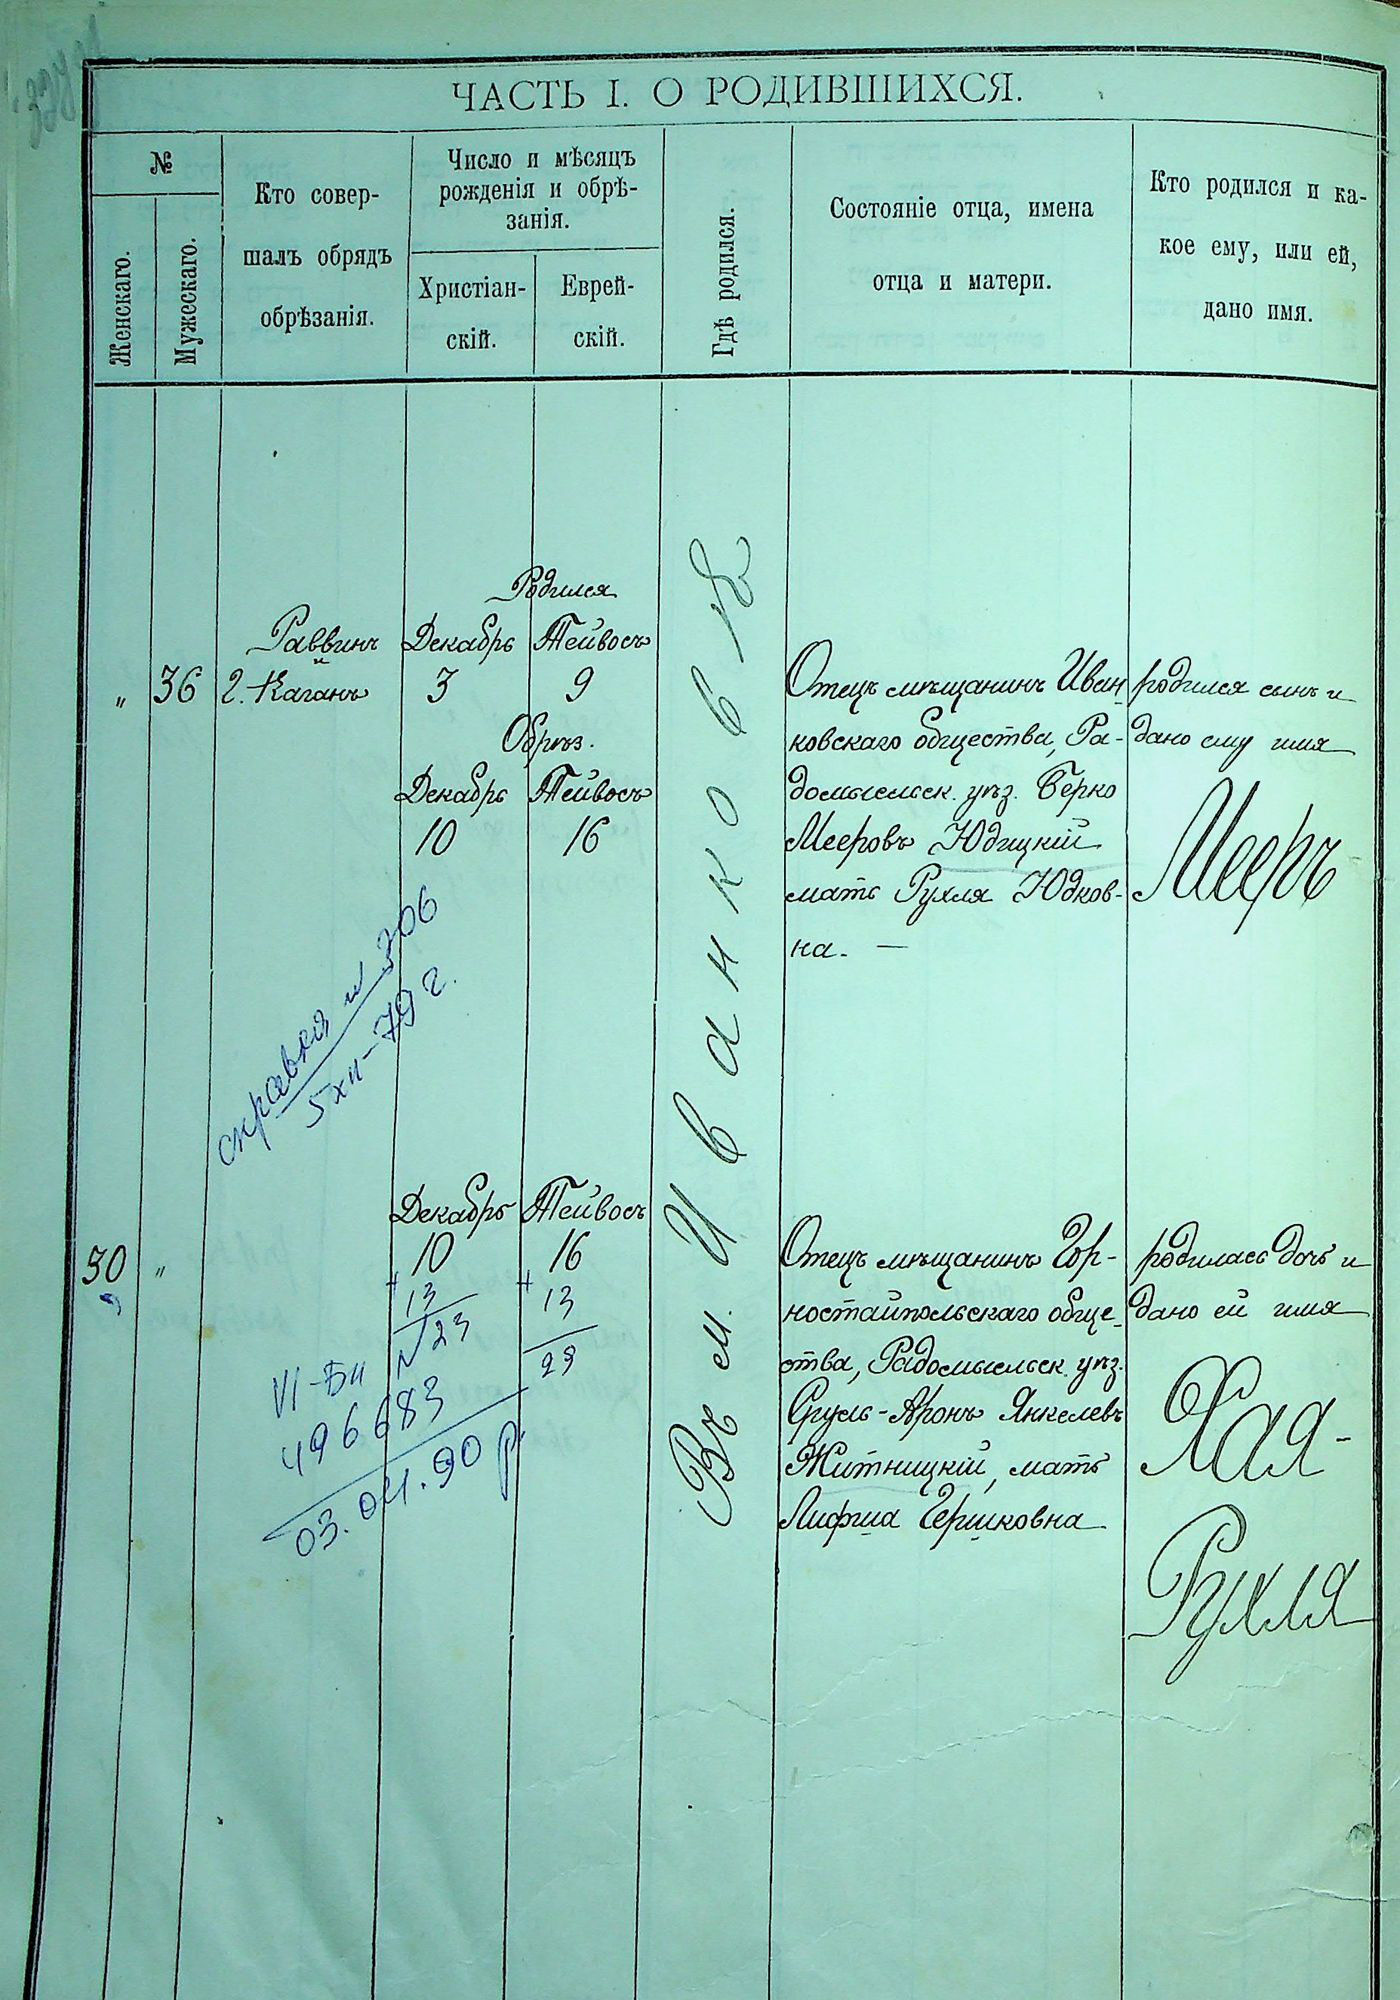 ЧАСТЬ I. О РОДИВШИХСЯ.
№
Женскаго.
Мужескаго.
Кто совер-
шалъ обрядъ
обрѣзанія.
Число и мѣсяцъ
рожденія и обрѣ-
занія.
Христіан-
скій.
Еврей-
скій.
Гдѣ родился.
Состояніе отца, имена
отца и матери.
Кто родился и ка-
кое ему, или ей,
дано имя.
„ 36
Раввинъ
Г. Каганъ
Родился
Декабрь Тейвосъ
3 9
Обрѣз.
Декабрь Тейвосъ
10 16
Въ м. Иванковѣ
Отецъ мѣщанинъ Иван
ковскаго общества, Ра-
домысльск. уѣз. Берко
Мееровъ Юдицкій
мать Рухля Юдков-
на. —
родился сынъ и
дано ему имя
Мееръ
справка № 306
5 XII-79 г.
30 „
Декабрь Тейвосъ
10 16
+ 13 + 13
23 29
VI-БИ №
496683
03.04.90 р.
Отецъ мѣщанинъ Гор-
ностайпольскаго обще-
ства, Радомысльск. уѣз.
Сруль-Аронъ Янкелевъ
Житницкій, мать
Лифша Гершковна
родилась дочь и
дано ей имя
Хая-
Рухля